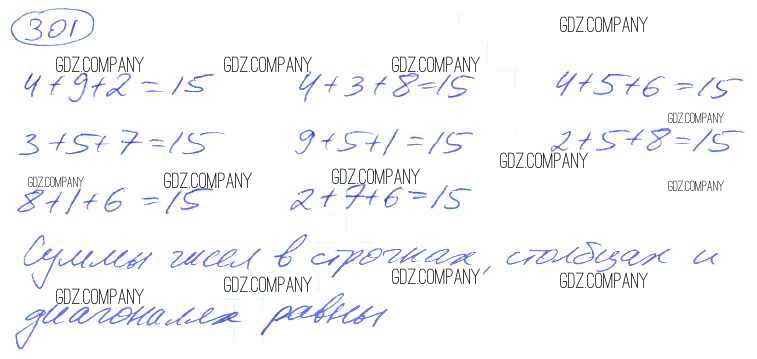 301
GDZ.COMPANY
GDZ.COMPANY GDZ.COMPANY GDZ.COMPANY
4+9+2=15 4+3+8=15 4+5+6=15
GDZ.COMPANY
3+5+7=15 9+5+1=15 2+5+8=15
GDZ.COMPANY
GDZ.COMPANY GDZ.COMPANY GDZ.COMPANY GDZ.COMPANY
8+1+6=15 2+7+6=15
Суммы чисел в строчках, столбцах и
GDZ.COMPANY GDZ.COMPANY GDZ.COMPANY GDZ.COMPANY
диагоналях равны